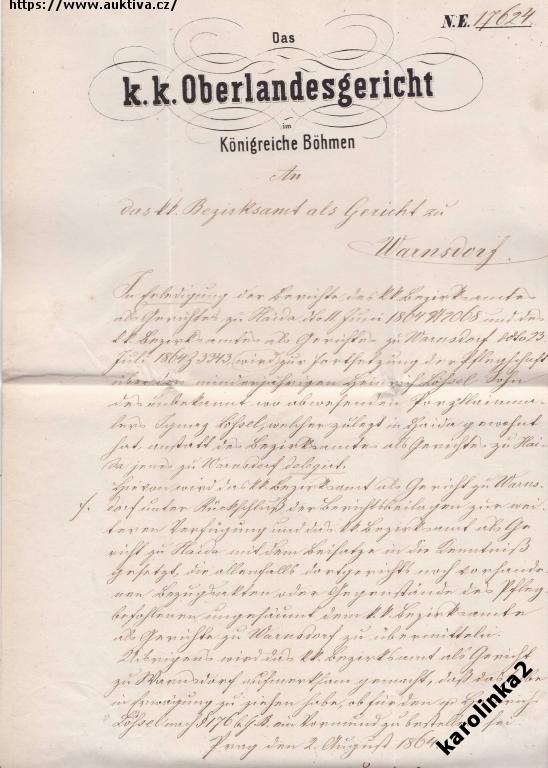 https://www.auktiva.cz/
N.E. 17624.
Das
k. k. Oberlandesgericht
im
Königreiche Böhmen
An
das k.k. Bezirksamt als Gericht zu
Warnsdorf.
In Erledigung der Berichte des k.k. Bezirksamtes
als Gerichtes zu Haida dto 11. Juni 1864 Z 2068 und des
k.k. Bezirksamtes als Gerichtes zu Warnsdorf ddto 23.
Juli 1864 Z 3243 wird zur Fortsetzung der Pflegschaft
über den minderjährigen Heinrich Löhsel Sohn
des unbekannt wo abwesenden Porzellainma-
lers Ignaz Löhsel, welcher zuletzt in Haida gewohnt
hat, anstatt des Bezirksamtes als Gerichtes zu Hai-
da jenes zu Warnsdorf delegirt.
Hievon wird das k.k. Bezirksamt als Gericht zu Warns-
/. dorf unter Rückschluß der Berichtsbeilagen zur wei-
teren Verfügung und das k.k. Bezirksamt als Ge-
richt zu Haida mit dem Beisatze in die Kenntniß
gesetzt, die allenfalls dortgerichts noch vorhande-
nen Bezugsakten oder Gegenstände des Pfleg-
befohlenen ungesäumt dem k.k. Bezirksamte
als Gerichte zu Warnsdorf zu übermitteln.
Übrigens wird das k.k. Bezirksamt als Gericht
zu Warnsdorf aufmerksam gemacht, daß dasselbe
in Erwägung zu ziehen habe, ob für den Heinrich
Löhsel nach § 176 b.G.B. ein Vormund zu bestellen sei.
Prag den 2. August 1864
karolinka2